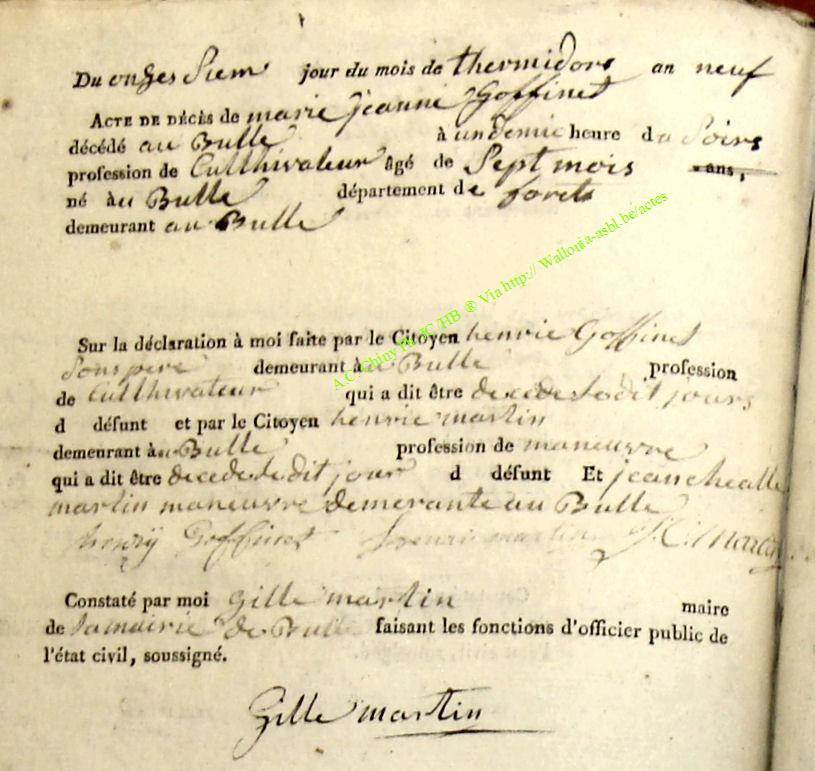 Du onzes Siem jour du mois de thermidors an neuf
ACTE DE DÉCÈS de marie jeanne Goffinet
décédé au Bulle à un demie heure du Soirs
profession de Culthivateur âgé de Sept mois ans,
né àu Bulle département de forets
demeurant au Bulle
Sur la déclaration à moi faite par le Citoyen henrie Goffinet
Sons pere demeurant àu Bulle profession
de Culthivateur qui a dit être decede le dit jours
d défunt et par le Citoyen henrie martin
demeurant àu Bulle profession de maneuvre
qui a dit être decede le dit jour d défunt Et jean
martin maneuvre demerante au Bulle
henrÿ Goffinet henri martin J.C. Martin
Constaté par moi Gille martin maire
de la mairie de Bulle faisant les fonctions d'officier public de
l'état civil, soussigné.
Gille martin
A.C. Chiny HB ® Via http:// Wallonia-asbl.be/actes